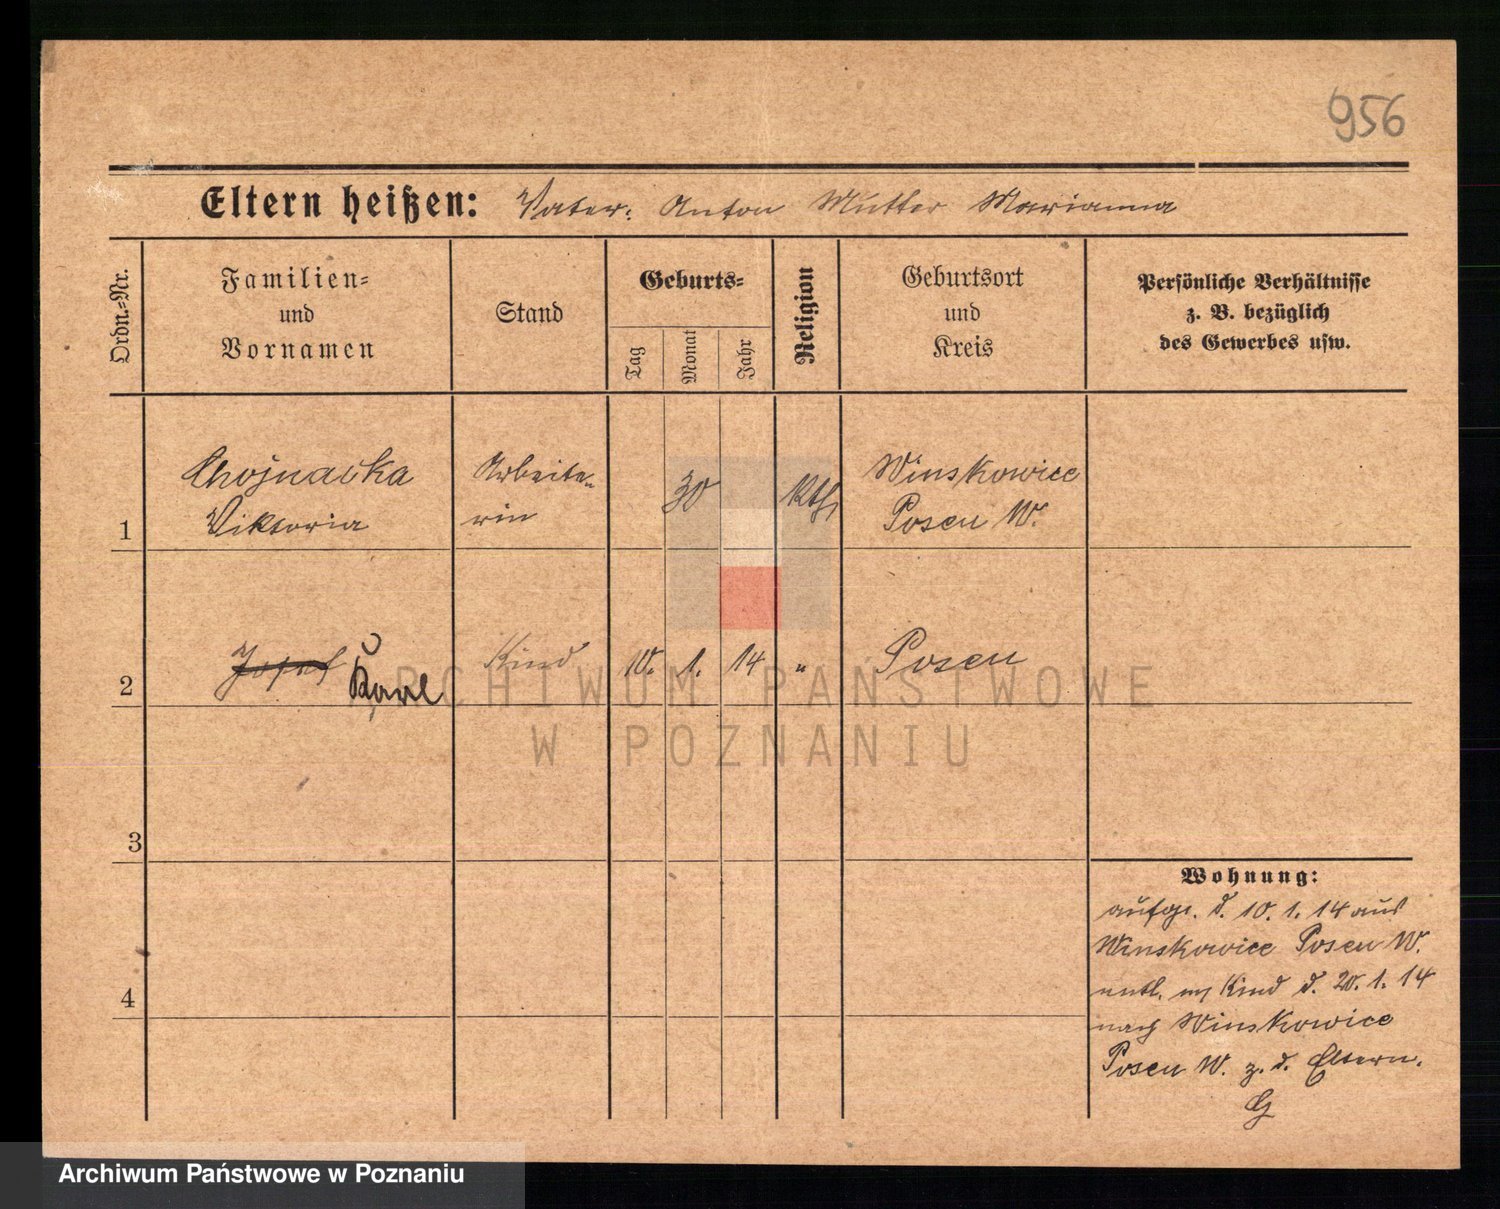 956
Eltern heißen: Vater: Anton Mutter Marianna
Ordn.-Nr.
Familien-
und
Vornamen
Stand
Geburts-
Tag
Monat
Jahr
Religion
Geburtsort
und
Kreis
Persönliche Verhältnisse
z. B. bezüglich
des Gewerbes usw.
1
Chojnacka
Viktoria
Arbeite-
rin
30
kth
Winskowice
Posen W.
2
Josef Karl
Kind
10. 1. 14
"
Posen
3
4
Wohnung:
aufgr. d. 10. 1. 14 aus
Winskowice Posen W.
entl. m Kind d. 20. 1. 14
nach Winskowice
Posen W. z. d. Eltern.
G
ARCHIWUM PAŃSTWOWE
W POZNANIU
Archiwum Państwowe w Poznaniu